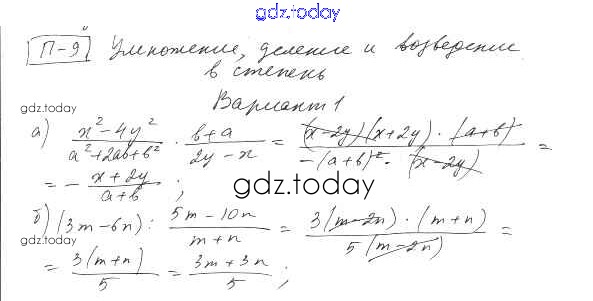 gdz.today
П-9 Умножение, деление и возведение
в степень
Вариант 1
gdz.today
а) (x²-4y²)/(a²+2ab+b²) · (b+a)/(2y-x) = ((x-2y)(x+2y)·(a+b))/(-(a+b)²·(x-2y)) =
= -(x+2y)/(a+b) ;
gdz.today
б) (3m-6n) : (5m-10n)/(m+n) = (3(m-2n)·(m+n))/(5(m-2n)) =
gdz.today
= (3(m+n))/5 = (3m+3n)/5 ;